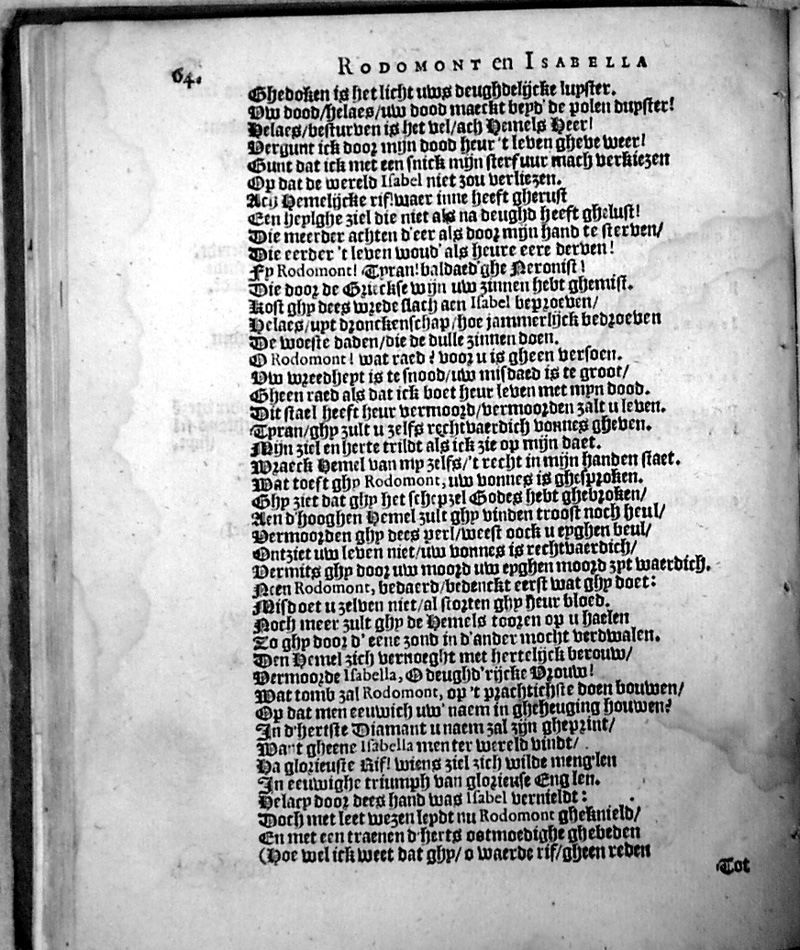 64.
RODOMONT en ISABELLA
Ghedoken is het licht uws deughdelijcke lupster.
Uw dood/helaes/uw dood maeckt beyd' de polen dupster!
Helaes/besturven is het vel/ach Hemels Heer!
Vergunt ick door mijn dood heur 't leven gheve weer!
Gunt dat ick met een snick mijn sterfuur mach verkiezen
Op dat de wereld Isabel niet zou verliezen.
Acij Hemelijcke rif! waer inne heeft gherust
Een heylghe ziel die niet als na deughd heeft ghelust!
Die meerder achten d'eer als door mijn hand te sterven/
Die eerder 't leven woud' als heure eere derven!
Fy Rodomont! Tyran! baldaed'ghe Neronist!
Die door de Grieckse wijn uw zinnen hebt ghemist.
Kost ghy dees wrede slach aen Isabel beproeven/
Helaes/uyt dronckenschap/hoe jammerlijck bedroeven
De woeste daden/die de dulle zinnen doen.
O Rodomont! wat raed? voor u is gheen versoen.
Uw wreedheyt is te snood/uw misdaed is te groot/
Gheen raed als dat ick boet heur leven met myn dood.
Dit stael heeft heur vermoord/vermoorden zalt u leven.
Tyran/ghy zult u zelfs rechtvaerdich vonnes gheven.
Mijn ziel en herte trildt als ick zie op mijn daet.
Wraeck Hemel van my zelfs/'t recht in mijn handen staet.
Wat toeft ghy Rodomont, uw vonnes is ghesproken.
Ghy ziet dat ghy het schepzel Godes hebt ghebroken/
Aen d'hooghen Hemel zult ghy vinden troost noch heul/
Vermoorden ghy dees perl/weest oock u eyghen beul/
Ontziet uw leven niet/uw vonnes is rechtvaerdich/
Vermits ghy door uw moord uw eyghen moord zyt waerdich.
Neen Rodomont, bedaerd/bedenckt eerst wat ghy doet:
Misdoet u zelven niet/al storten ghy heur bloed.
Noch meer zult ghy de Hemels tooren op u haelen
Zo ghy door d'eene zond in d'ander mocht verdwalen.
Den Hemel zich vernoeght met hertelijck berouw/
Vermoorde Isabella, O deughd'rijcke Vrouw!
Wat tomb zal Rodomont, op 't prachtichste doen bouwen/
Op dat men eeuwich uw' naem in gheheuging houwen?
In d'hertste Diamant u naem zal zijn gheprint/
Want gheene Isabella men ter wereld vindt/
Ha glorieuste Rif! wiens ziel zich wilde meng'len
In eeuwighe triumph van glorieuse Englen.
Helacy door dees hand was Isabel vernieldt:
Doch met leet wezen leydt nu Rodomont gheknield/
En met een traenen d'herts ootmoedighe ghebeden
(Hoe wel ick weet dat ghy/o waerde rif/gheen reden
Tot